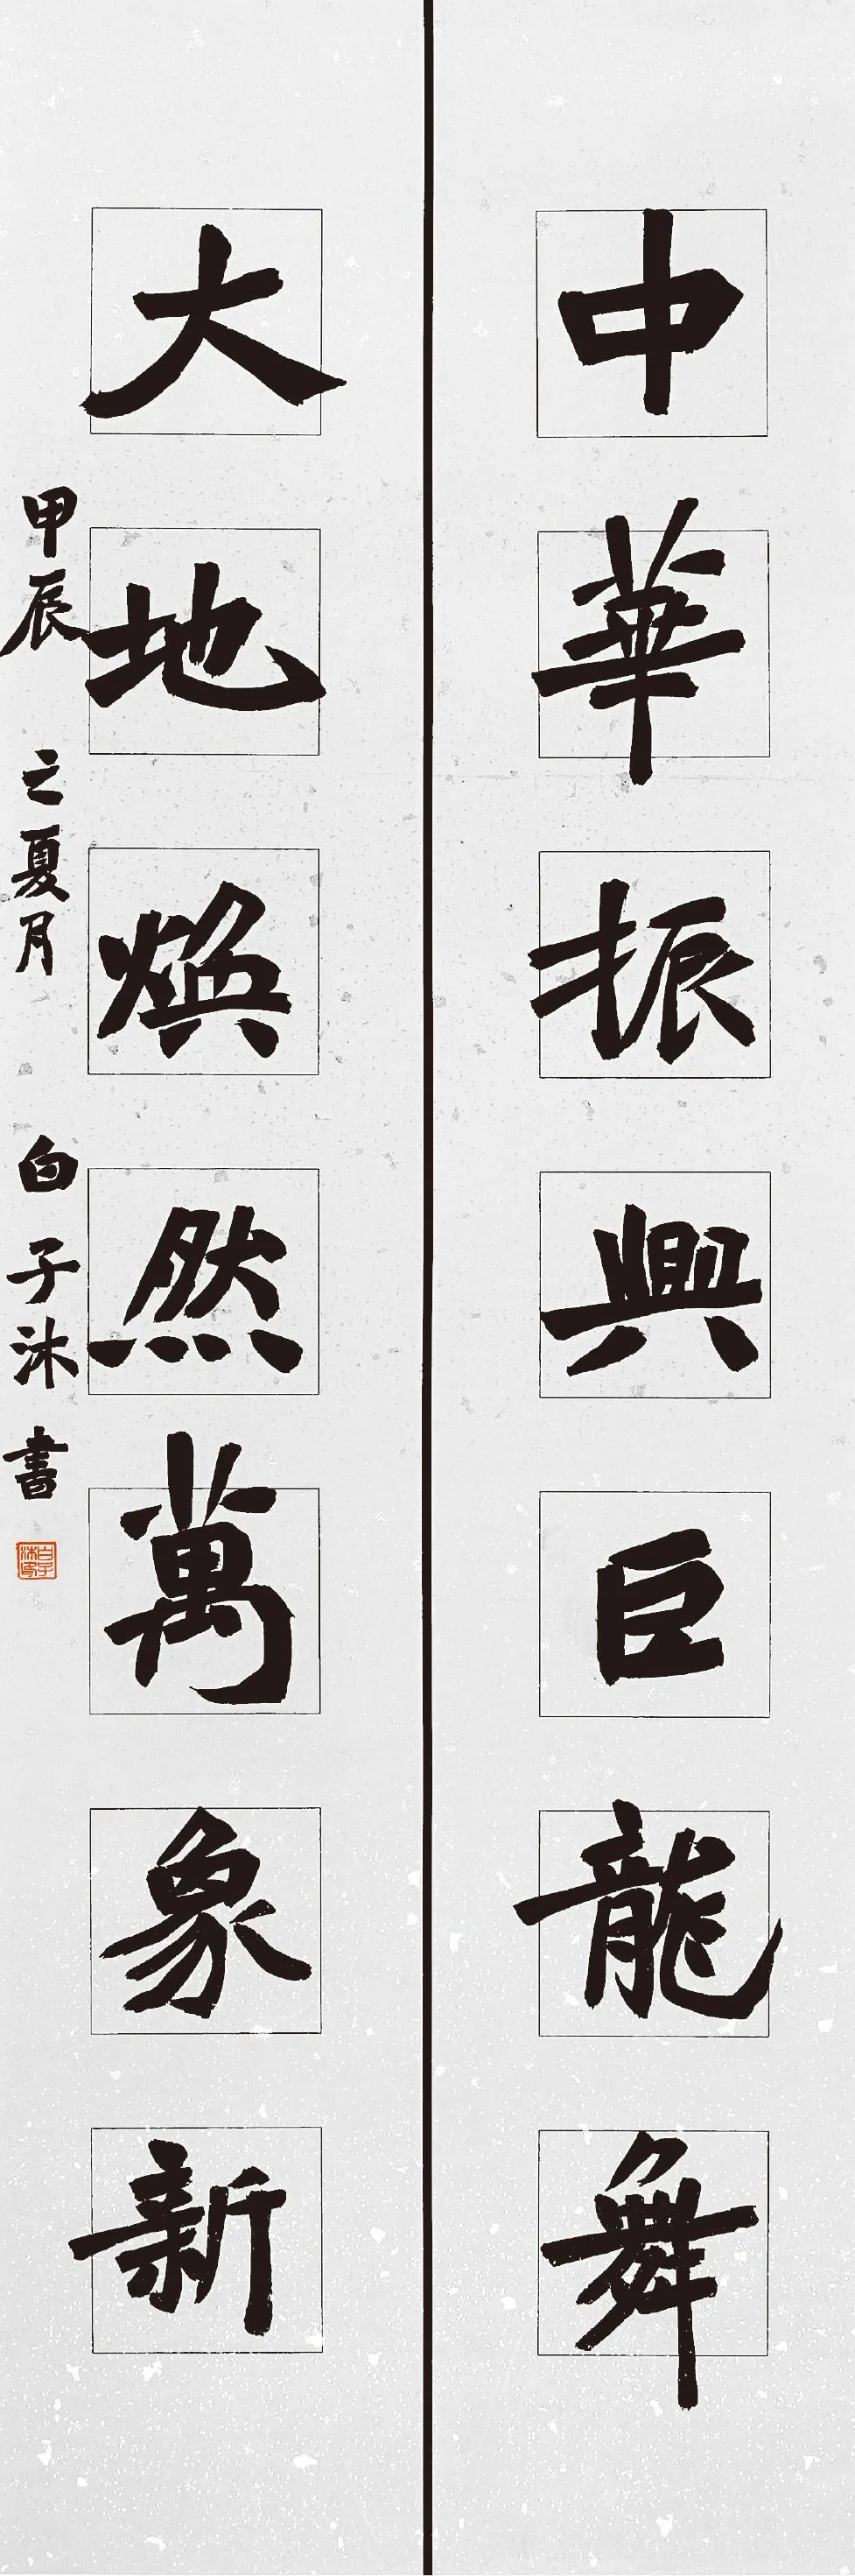 中華振興巨龍舞
大地焕然萬象新
甲辰之夏月白子沐書
白子沐印